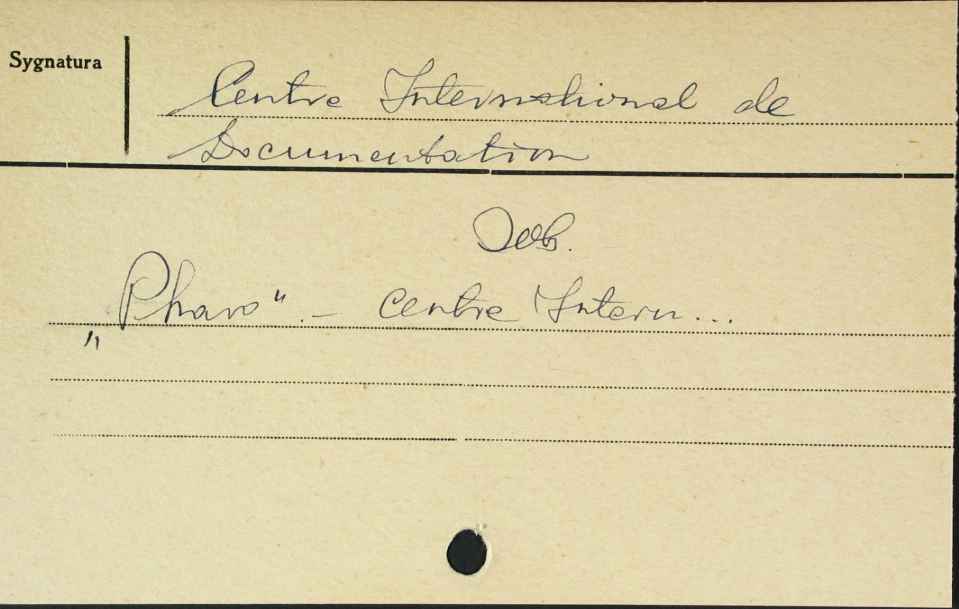 Sygnatura
Centre International de
Documentation
zob.
„Pharo". - Centre Intern...